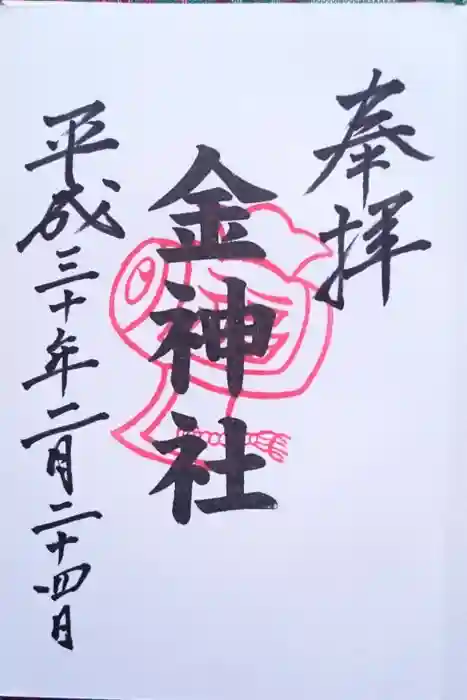 奉拝
金神社
平成三十年二月二十四日